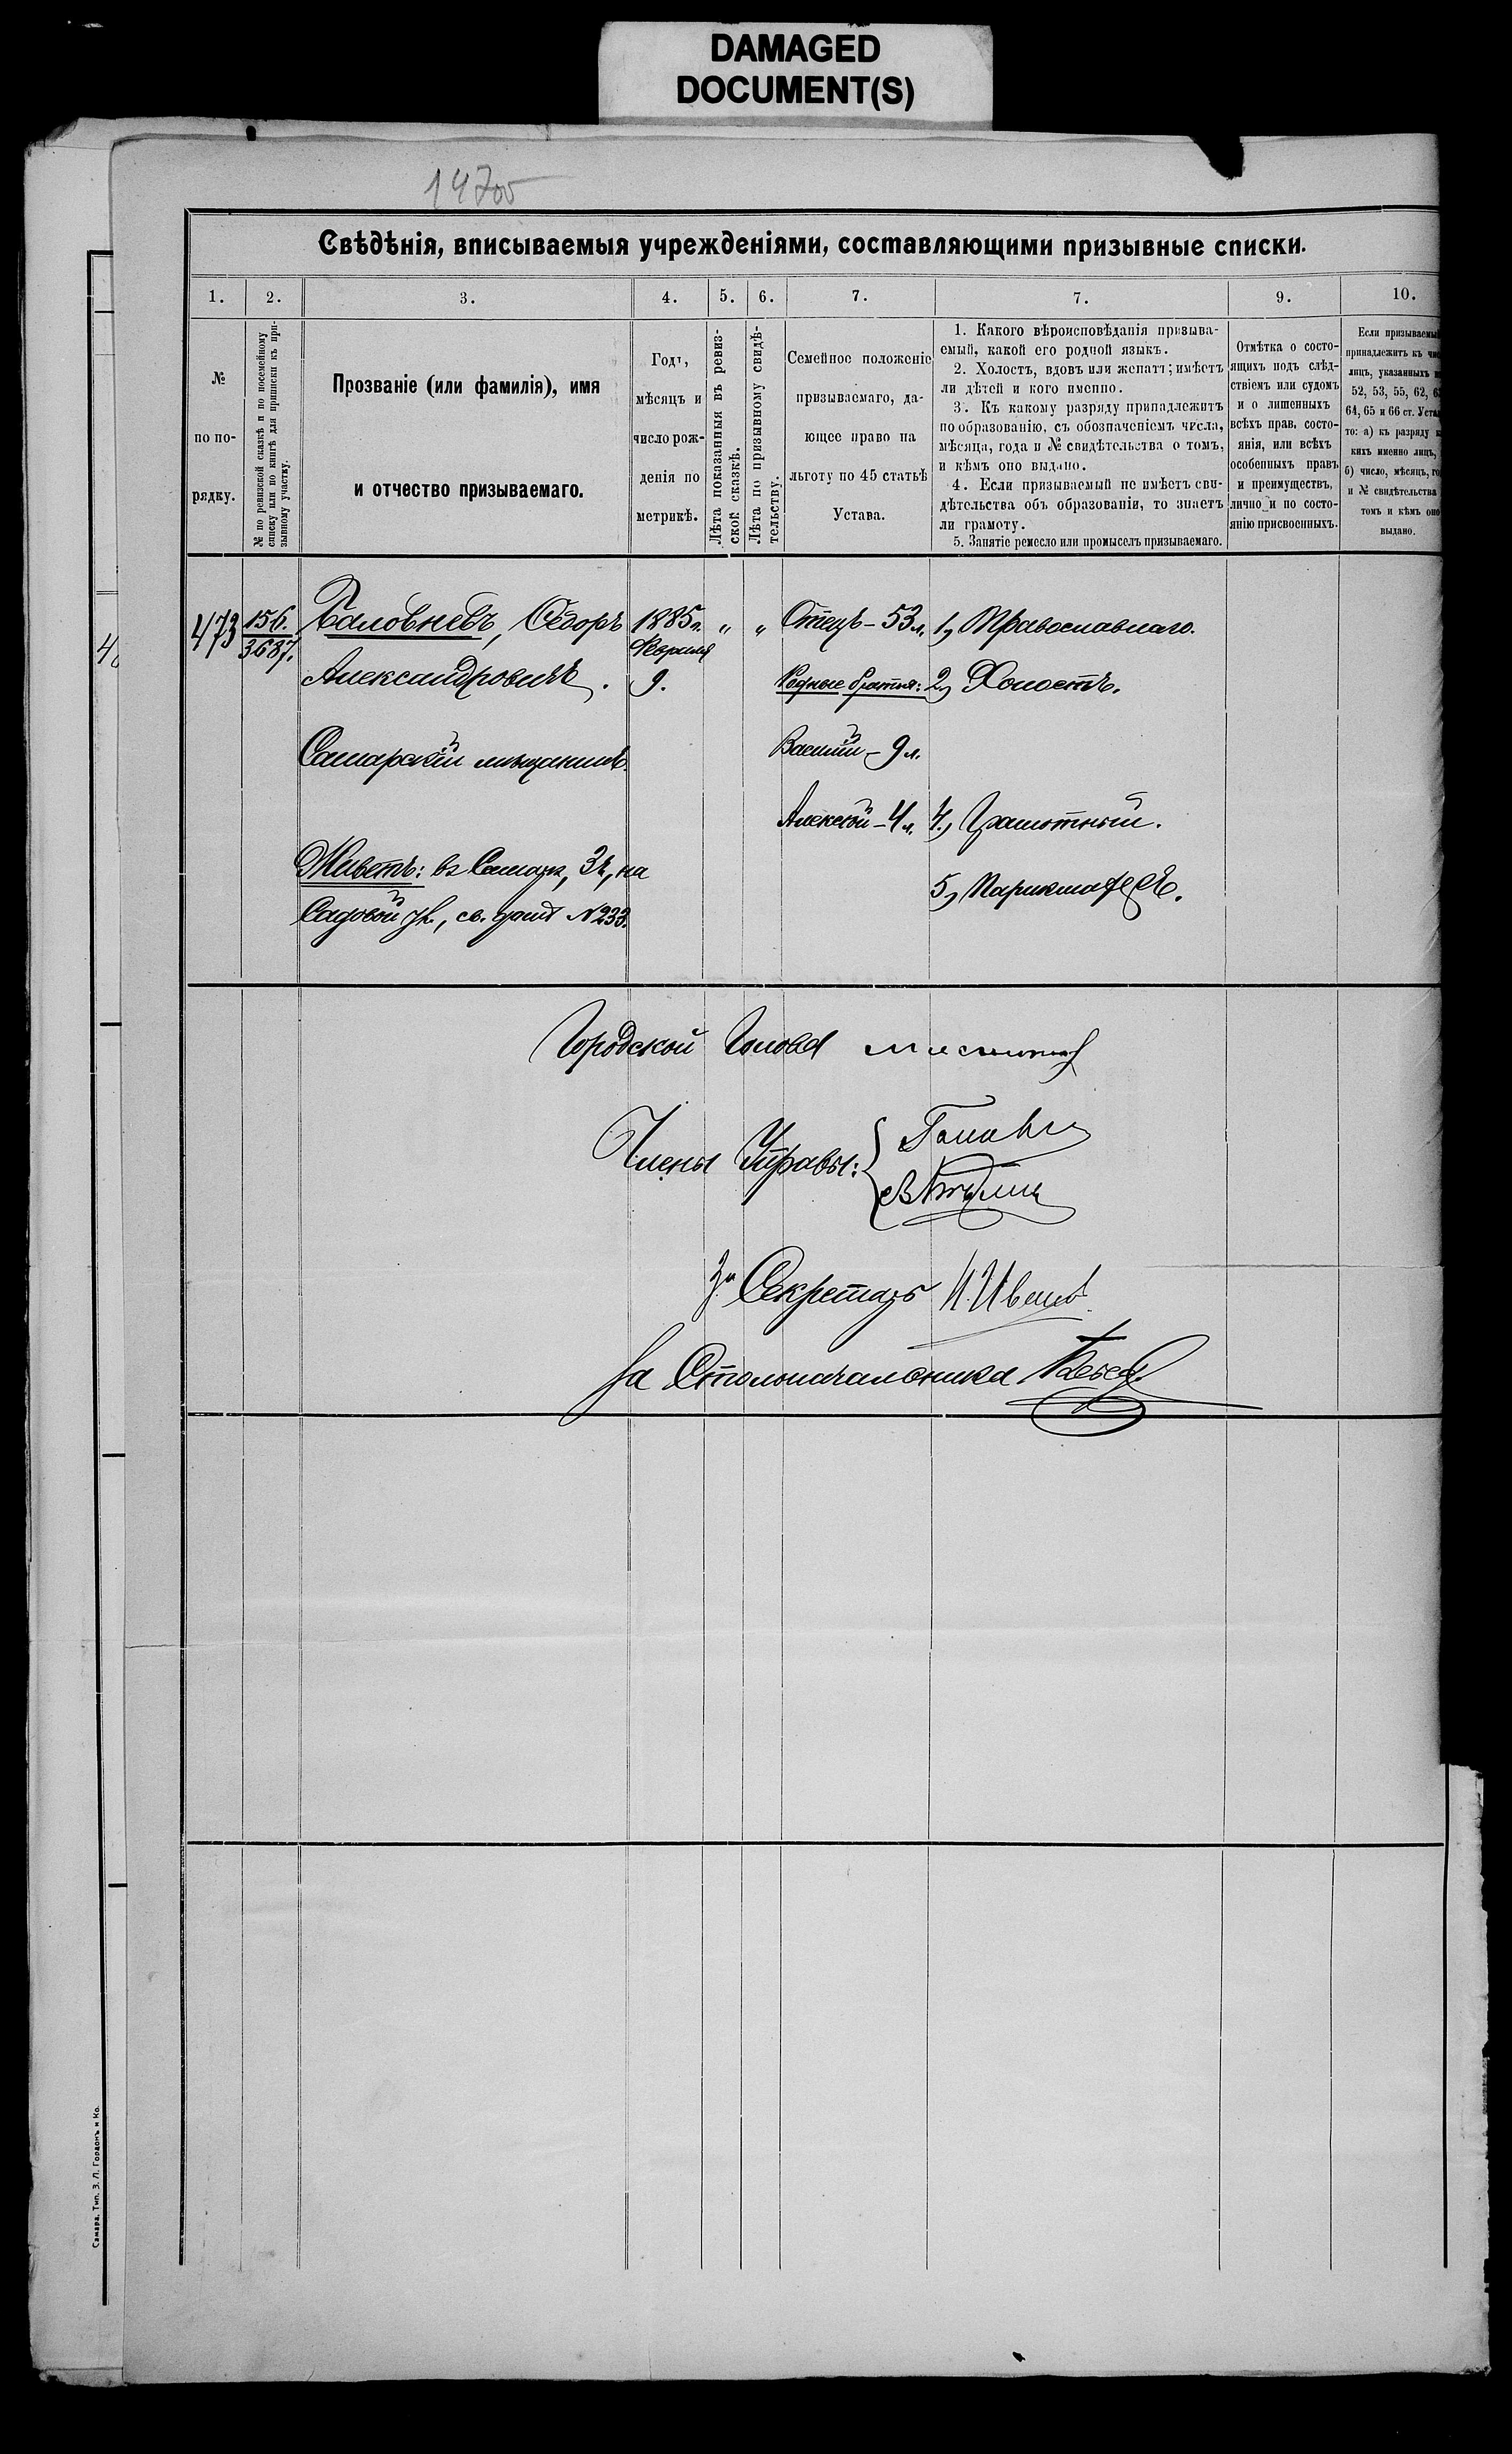 DAMAGED
DOCUMENT(S)
14700
Свѣдѣнія, вписываемыя учрежденіями, составляющими призывные списки.
1.
2.
3.
4.
5.
6.
7.
7.
9.
10.
№
по по-
рядку.
№ по ревизской сказкѣ и по посемейному
списку или по книгѣ для приписки къ при-
зывному участку.
Прозваніе (или фамилія), имя
и отчество призываемаго.
Годъ,
мѣсяцъ и
число рож-
денія по
метрикѣ.
Лѣта показанныя въ ревиз-
ской сказкѣ.
Лѣта по призывному свидѣ-
тельству.
Семейное положеніе
призываемаго, да-
ющее право на
льготу по 45 статьѣ
Устава.
1. Какого вѣроисповѣданія призыва-
емый, какой его родной языкъ.
2. Холостъ, вдовъ или женатъ; имѣетъ
ли дѣтей и кого именно.
3. Къ какому разряду принадлежитъ
по образованію, съ обозначеніемъ числа,
мѣсяца, года и № свидѣтельства о томъ,
и кѣмъ оно выдано.
4. Если призываемый не имѣетъ сви-
дѣтельства объ образованіи, то знаетъ
ли грамоту.
5. Занятіе ремесло или промыселъ призываемаго.
Отмѣтка о состо-
ящихъ подъ слѣд-
ствіемъ или судомъ
и о лишенныхъ
всѣхъ прав, состо-
янія, или всѣхъ
особенныхъ правъ
и преимуществъ,
лично и по состо-
янію присвоенныхъ.
Если призываемый
принадлежитъ къ чис
лицъ, указанныхъ
52, 53, 55, 62, 63
64, 65 и 66 ст. Устав
то: а) къ разряду
кихъ именно лицъ,
б) число, мѣсяцъ, го
и № свидѣтельства
томъ и кѣмъ оно
выдано.
473
156.
3687.
Баловневъ, Ѳедоръ
Александровичъ.
Самарскій мѣщанинъ.
Живетъ: въ Самарѣ, 3 ч, на
Садовой ул., св. домъ № 233.
1885 г.
Февраля
9.
"
"
Отецъ - 53 л.
Родные братья:
Василій - 9 л.
Алексѣй - 4 л.
1, Православнаго.
2, Холостъ.
4, Грамотный.
5, Парикмахеръ.
Городской Голова
Члены Управы:
За Секретарь И. Ивановъ
За Столоначальника
Самара, Тип. З. Л. Гордонъ и Ко.